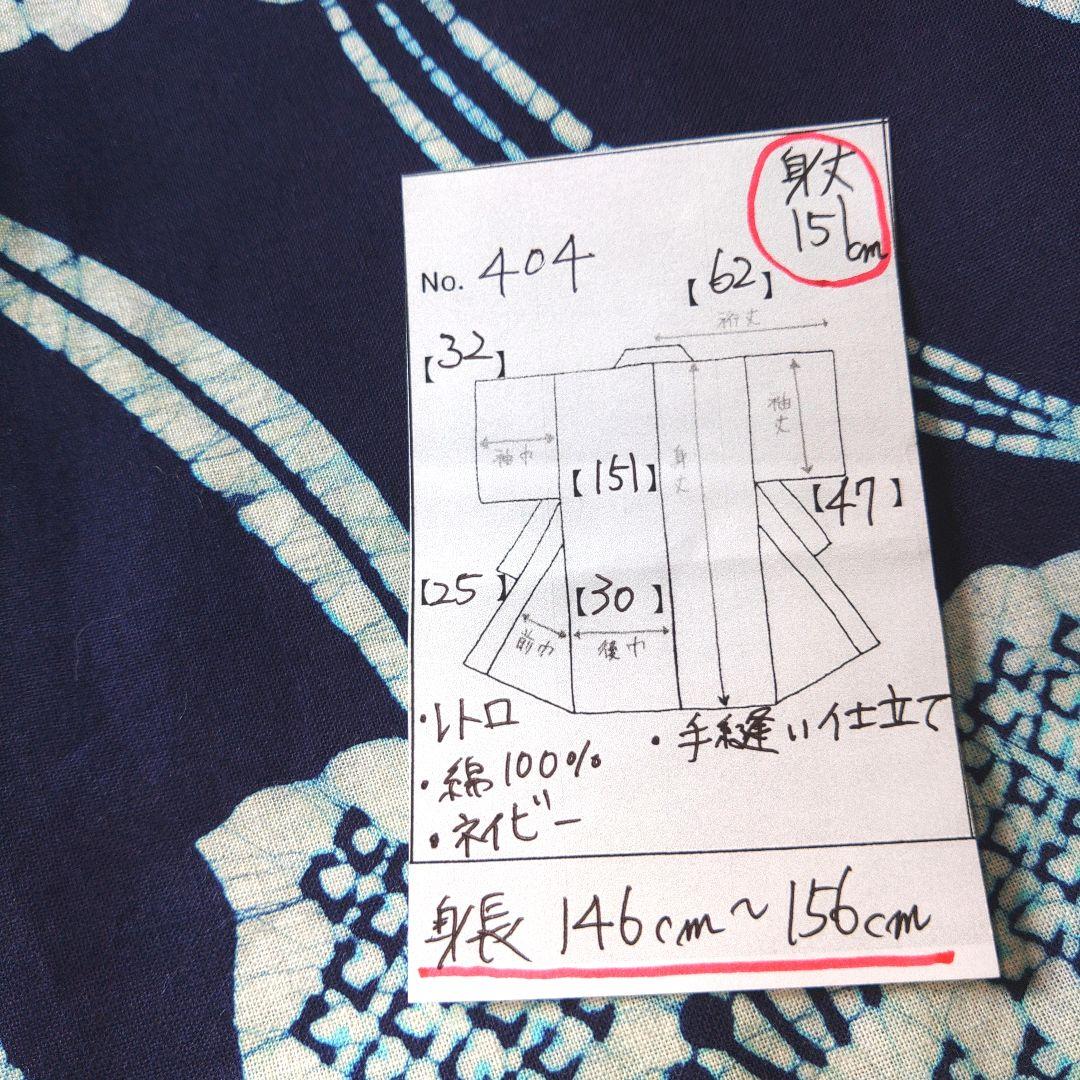 身丈
151cm
No. 404
【62】
裄丈
【32】
袖巾
袖丈
【151】
身丈
【47】
【25】
【30】
前巾
後巾
・レトロ
・手縫い仕立て
・綿100%
・ネイビー
身長 146cm~156cm